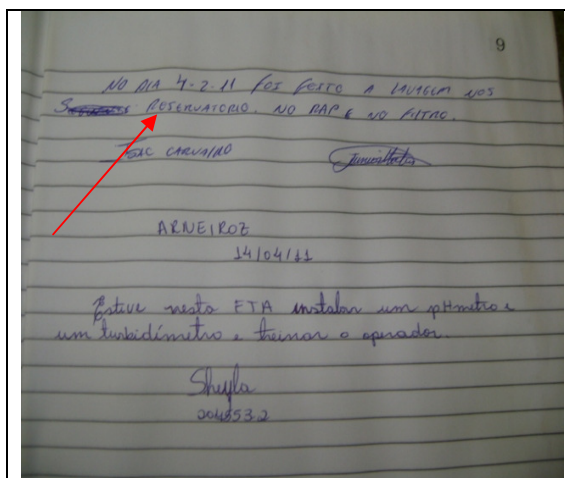 9
NO DIA 4-2-11 FOI FEITO A LAVAGEM NOS
RESERVATORIO. NO RAP E NO FILTRO.
CARVALHO
ARNEIROZ
14/04/11
Estive nesta ETA instalar um pHmetro e
um turbidímetro e treinar o operador.
Sheyla